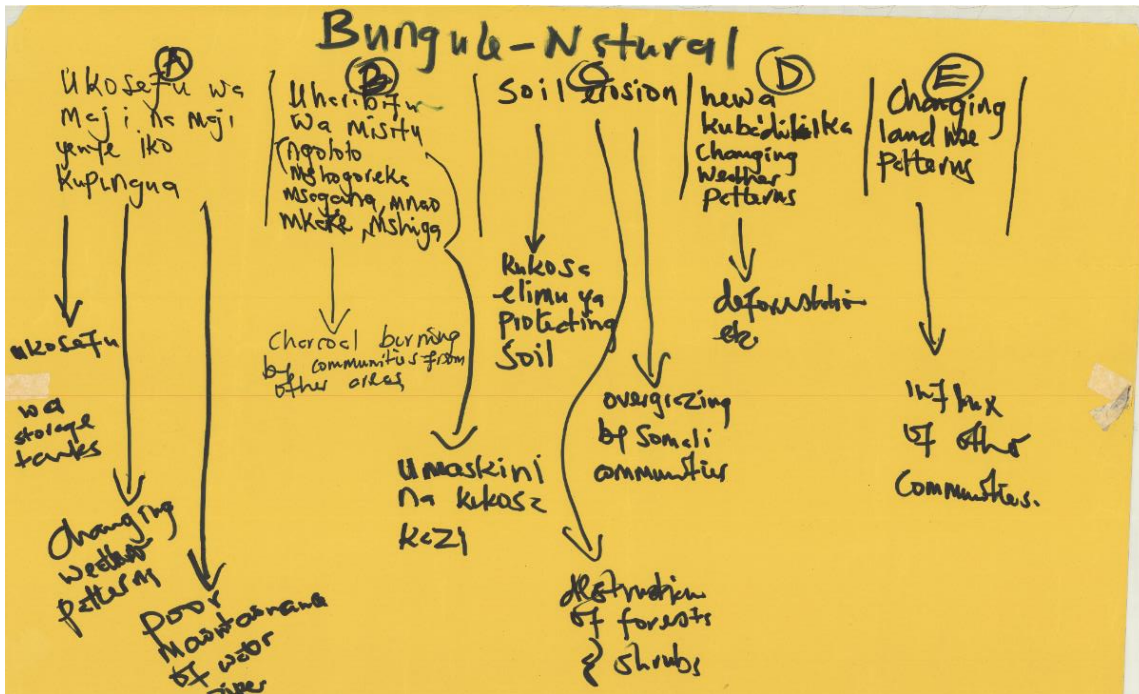 Bungule-Natural
A
Ukosefu wa
maji na maji
yenye iko
kupungua
ukosefu
wa
storage
tanks
Changing
weather
patterns
poor
maintainance
of water
B
Uharibifu
wa misitu
(ngoloto
Mkogoreka
msagana, mnao
mkake, Mshiga
Charcoal burning
by communities from
other areas
Umaskini
na kukosa
kazi
C
Soil erosion
kukosa
elimu ya
protecting
soil
overgrazing
by Somali
communities
destruction
of forests
& shrubs
D
hewa
kubadilika
Changing
weather
patterns
deforestation
etc
E
Changing
land use
patterns
influx
of other
Communities.